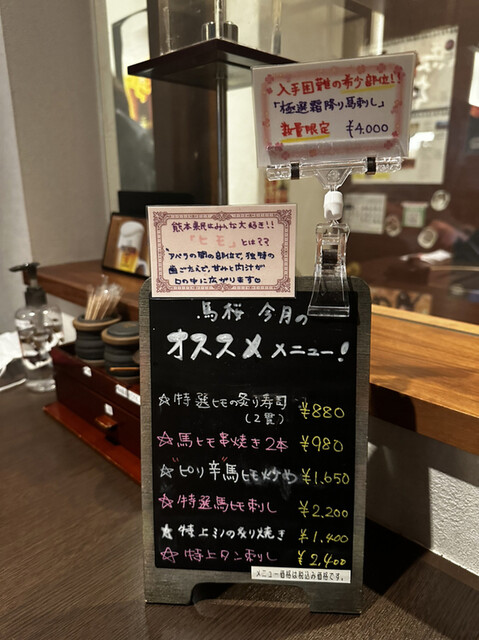 入手困難の希少部位!!
「極選霜降り馬刺し」
数量限定 ¥4,000
熊本県民はみんな大好き!!
「ヒモ」とは??
アバラの間の部位で、独特の
歯ごたえで、甘みと肉汁が
口の中に広がります。
馬桜 今月の
オススメメニュー!
☆特選ヒモの炙り寿司 ¥880
(2貫)
☆馬ヒモ串焼き2本 ¥980
☆"ピリ辛"馬ヒモ炒め ¥1,650
☆特選馬ヒモ刺し ¥2,200
☆特上ミノの炙り焼き ¥1,400
☆特上タン刺し ¥2,400
メニュー価格は税込み価格です。